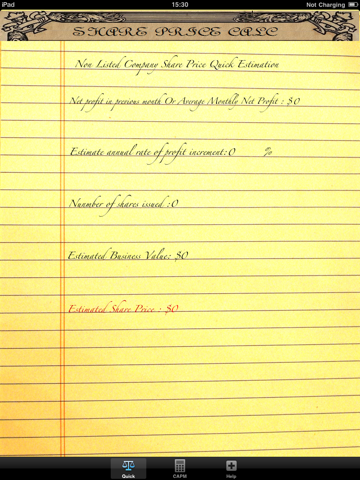 iPad 15:30 Not Charging
SHARE PRICE CALC
Non Listed Company Share Price Quick Estimation
Net profit in previous month Or Average Monthly Net Profit : $0
Estimate annual rate of profit increment:0 %
Nunmber of shares issued :0
Estimated Business Value: $0
Estimated Share Price : $0
Quick CAPM Help